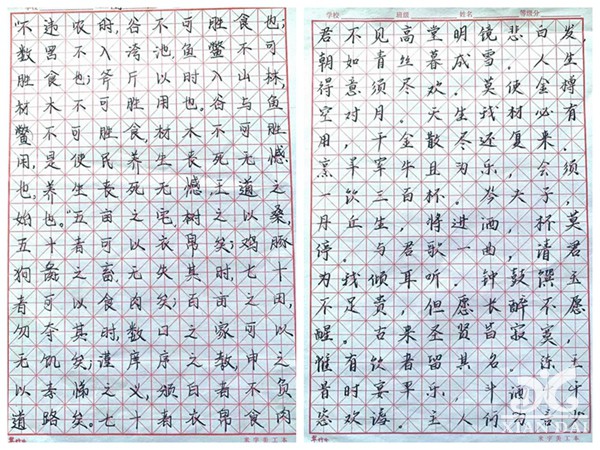 “不违农时,谷不可胜食也;
数罟不入洿池,鱼鳖不可
胜食也;斧斤以时入山林,
材木不可胜用也。谷与鱼
鳖不可胜食,材木不可胜
用,是使民养生丧死无憾
也。养生丧死无憾,王道之
始也。“五亩之宅,树之以桑,
五十者可以衣帛矣;鸡豚
狗彘之畜,无失其时,七十
者可以食肉矣;百亩之田,
勿夺其时,数口之家可以
无饥矣;谨庠序之教,申之
以孝悌之义,颁白者不负
道路矣。七十者衣帛食肉
学校 班级 姓名 等级分
君不见高堂明镜悲白发,
朝如青丝暮成雪。人生
得意须尽欢。莫使金樽
空对月。天生我材必有
用,千金散尽还复来.
烹羊宰牛且为乐,会须
一饮三百杯。岑夫子,
丹丘生,将进酒,杯莫
停。与君歌一曲,请君
为我倾耳听。钟鼓馔玉
不足贵,但愿长醉不愿
醒。古来圣贤皆寂寞,
惟有饮者留其名。陈王
昔时宴平乐,斗酒十千
恣欢谑。主人何为言少